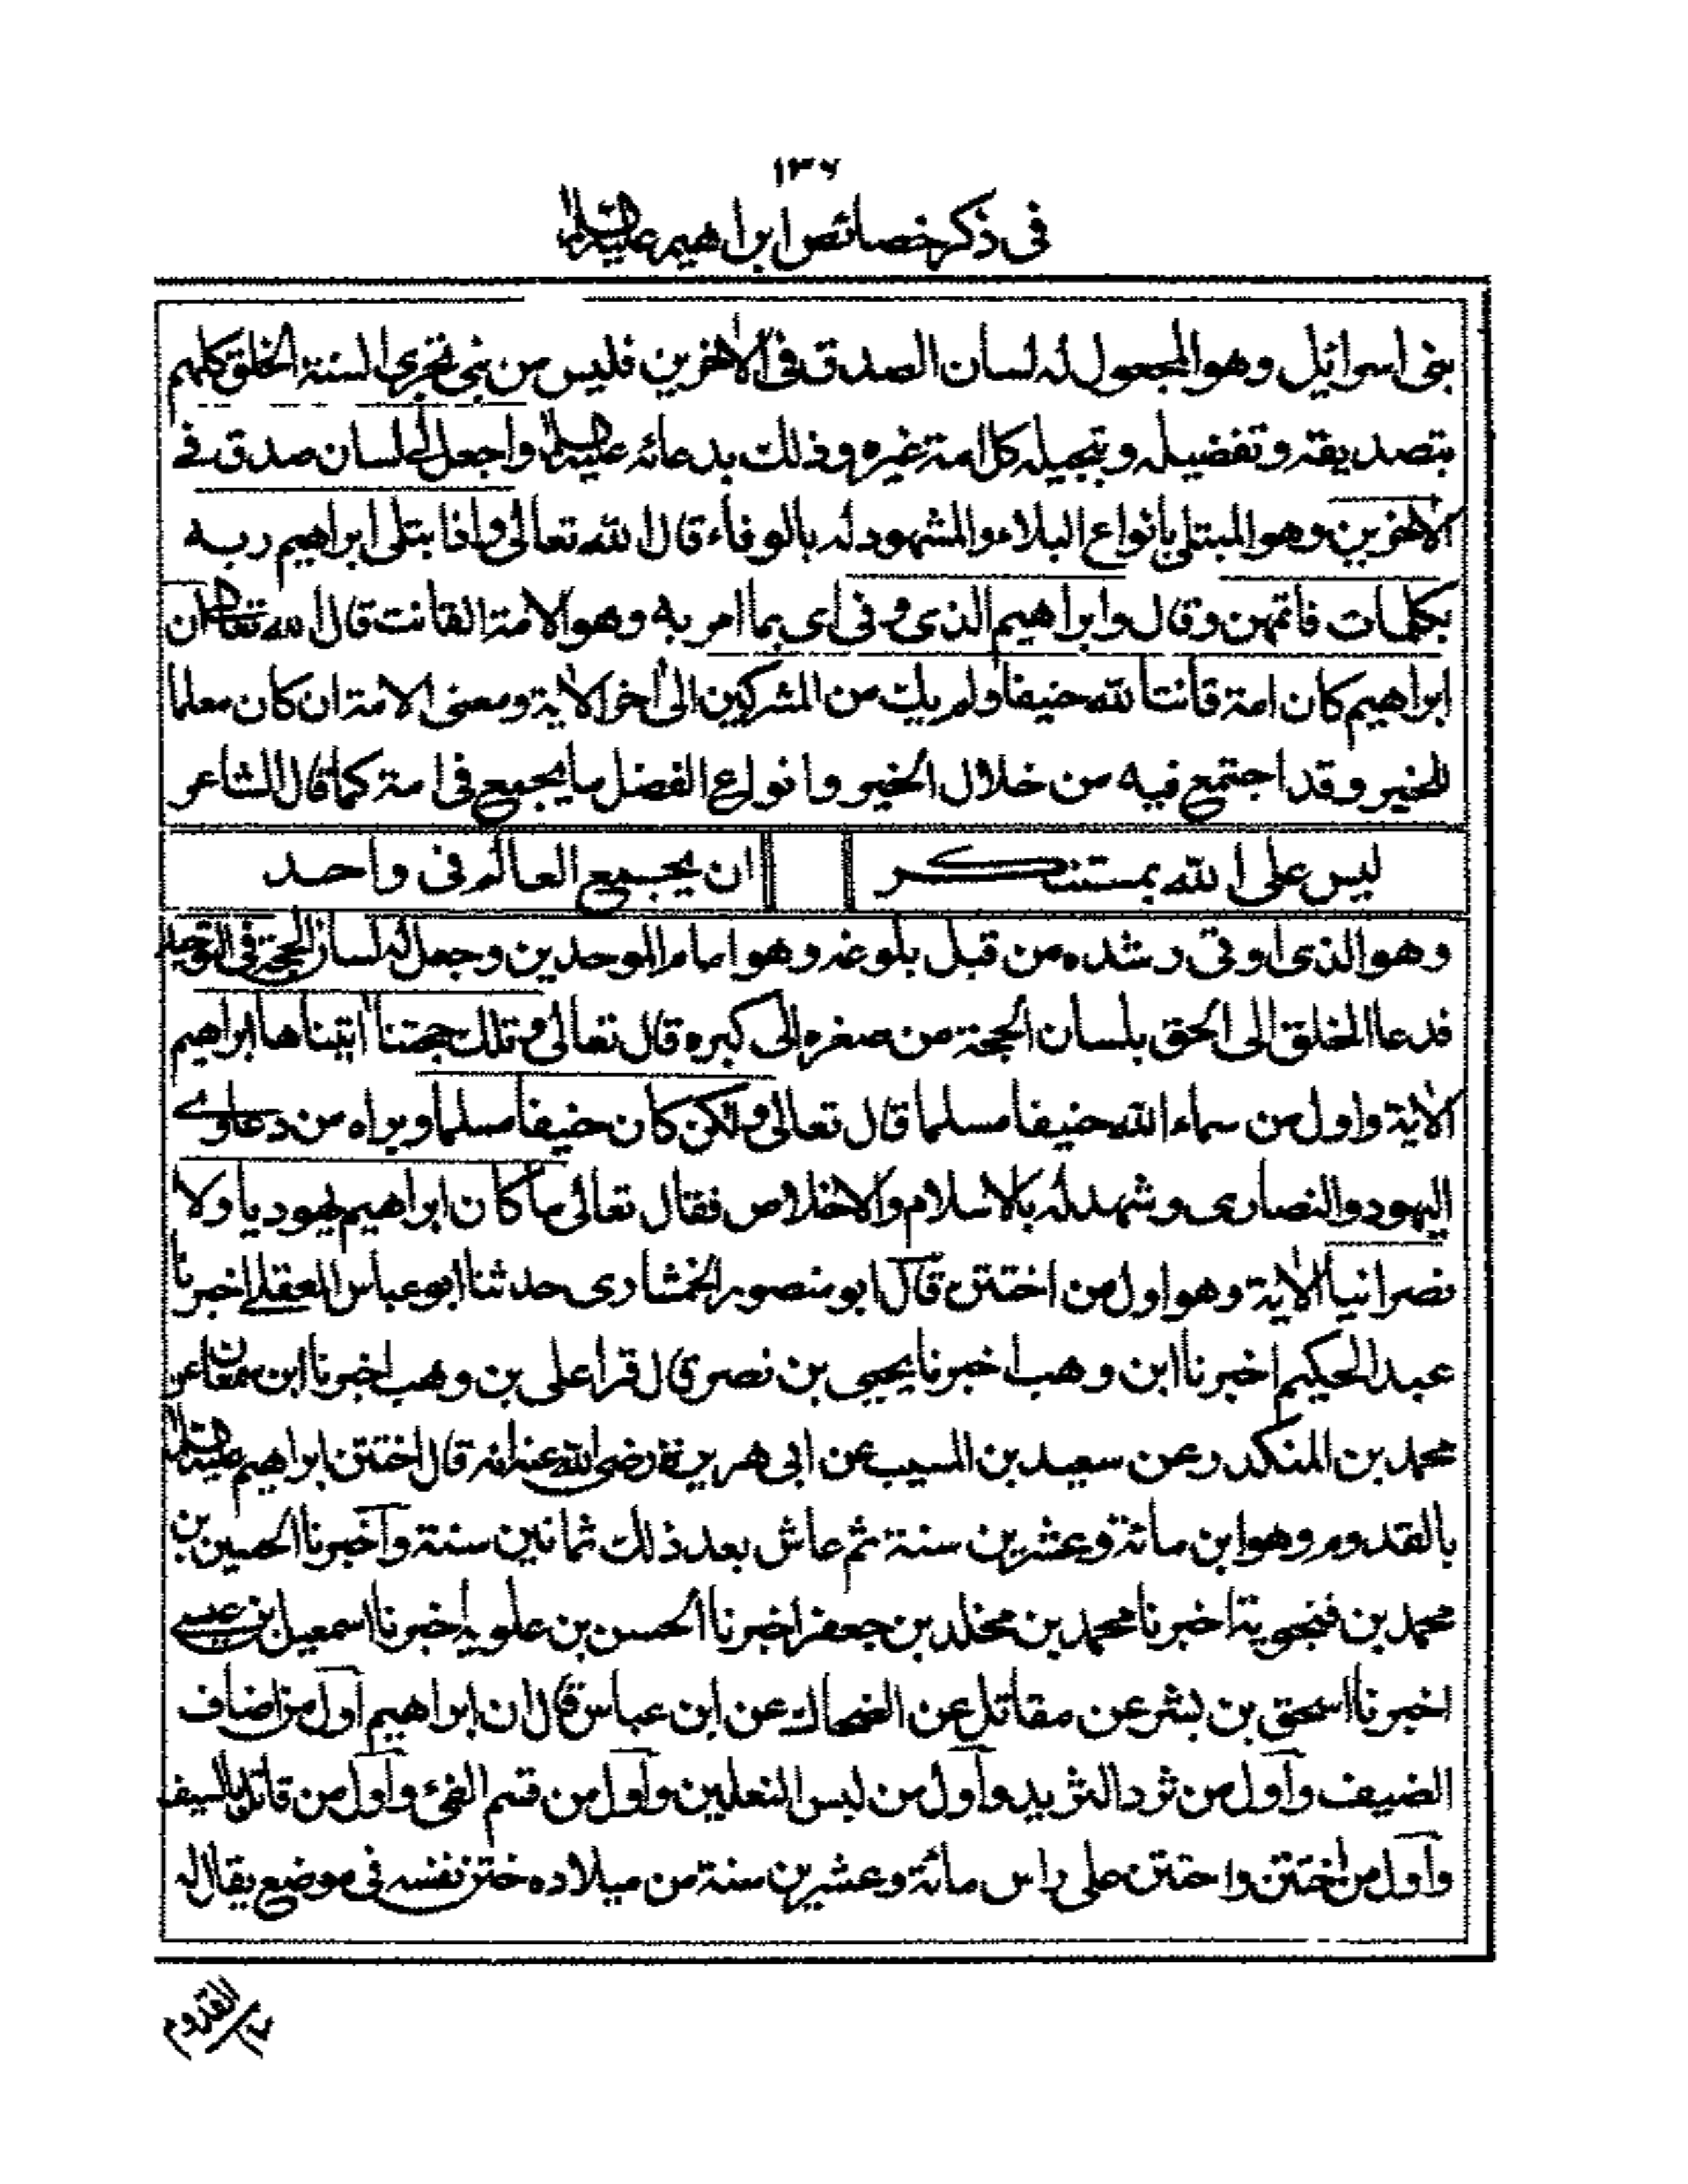 ١٣٦
في ذكر خصائص ابراهيم عليه السلام
بنى اسرائيل وهو المجعول له لسان الصدق فى الاٰخرين فليس من نبى تجرى السنة الخلق كلهم
بتصديقه وتفضيله وتبجيله كل امة غيره وذلك بدعائه عليه السلام واجعل لى لسان صدق فے
الاٰخرين وهو المبتلى بانواع البلاء والمشهود له بالوفاء قال الله تعالى واذا بتلى ابراهيم ربه
بكلمات فاتمهن وقال وابراهيم الذى وفى اى بما امر به وهو الامة القانت قال الله تعالى ان
ابراهيم كان امة قانتا لله حنيفا ولم يك من المشركين الى اٰخر الاٰية ومعنى الامة ان كان معلما
للخير وقد اجتمع فيه من خلال الخير وانواع الفضل ما يجمع فى امة كما قال الشاعر
ليس على الله بمستنكر ان يجمع العالم فى واحد
وهو الذى اوتى رشده من قبل بلوغه وهو امام الموحدين وجعل له لسان الحجة فى التوحيد
فدعا الخلق الى الحق بلسان الحجة من صغره الى كبره قال تعالى وتلك حجتنا اٰتيناها ابراهيم
الاٰية واول من سماه الله حنيفا مسلما قال تعالى ولكن كان حنيفا مسلما وبراه من دعاوے
اليهود والنصارى وشهد له بالاسلام والاخلاص فقال تعالى ما كان ابراهيم يهوديا ولا
نصرانيا الاٰية وهو اول من اختتن قال ابو منصور الخمشادى حدثنا ابو عباس المعقلے اخبرنا
عبد الحكيم اخبرنا ابن وهب اخبرنا يحيى بن نصر قال قرا على بن وهب اخبرنا ابن سمعان عن
محمد بن المنكدر عن سعيد بن المسيب عن ابى هريرة رضى الله عنه انه قال اختتن ابراهيم عليه السلام
بالقدوم وهو ابن مائة وعشرين سنة ثم عاش بعد ذلك ثمانين سنة واخبرنا الحسين بن
محمد بن فنجوية اخبرنا محمد بن مخلد بن جعفر اخبرنا الحسن بن علويه اخبرنا اسمعيل بن عيسے
اخبرنا اسحق بن بشر عن مقاتل عن الضحاك عن ابن عباس قال ان ابراهيم اول من اضاف
الضيف واول من ثرد الثريد واول من لبس النعلين واول من قسم الفئ واول من قاتل بالسيف
واول من اختتن واختتن على راس مائة وعشرين سنة من ميلاده ختن نفسه فى موضع يقال له
القدوم